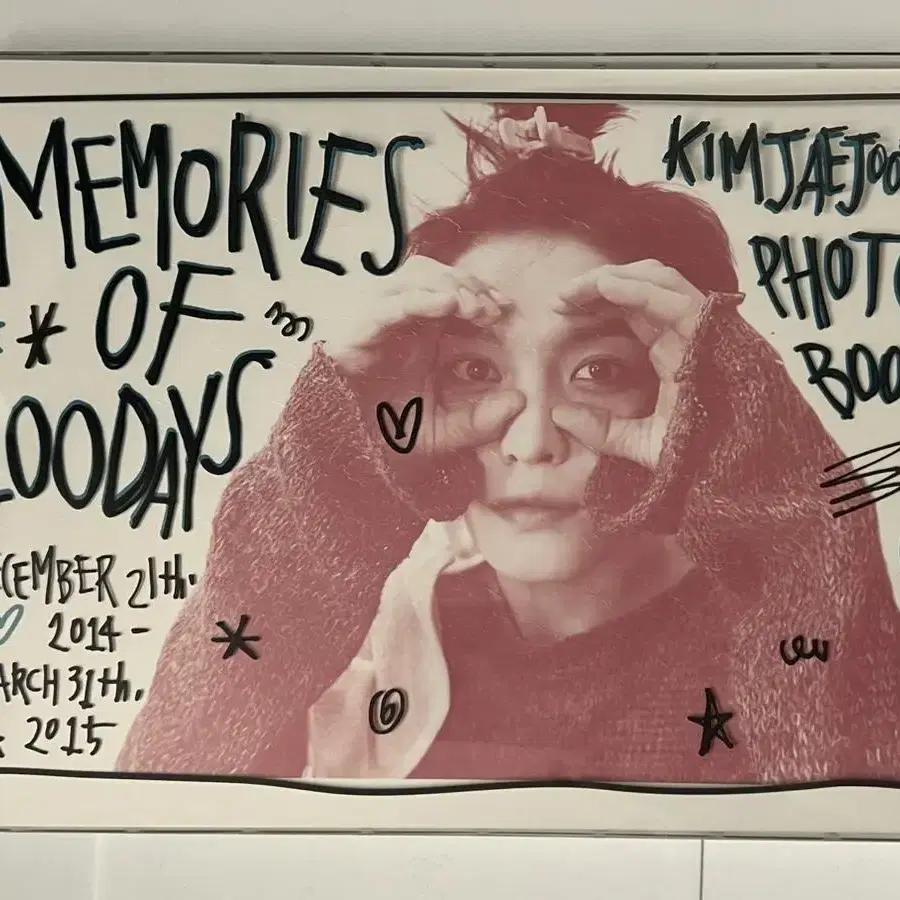 MEMORIES
OF
100DAYS
ECEMBER 21th.
2014 -
ARCH 31th.
2015
KIMJAEJOO
PHOTO
BOO